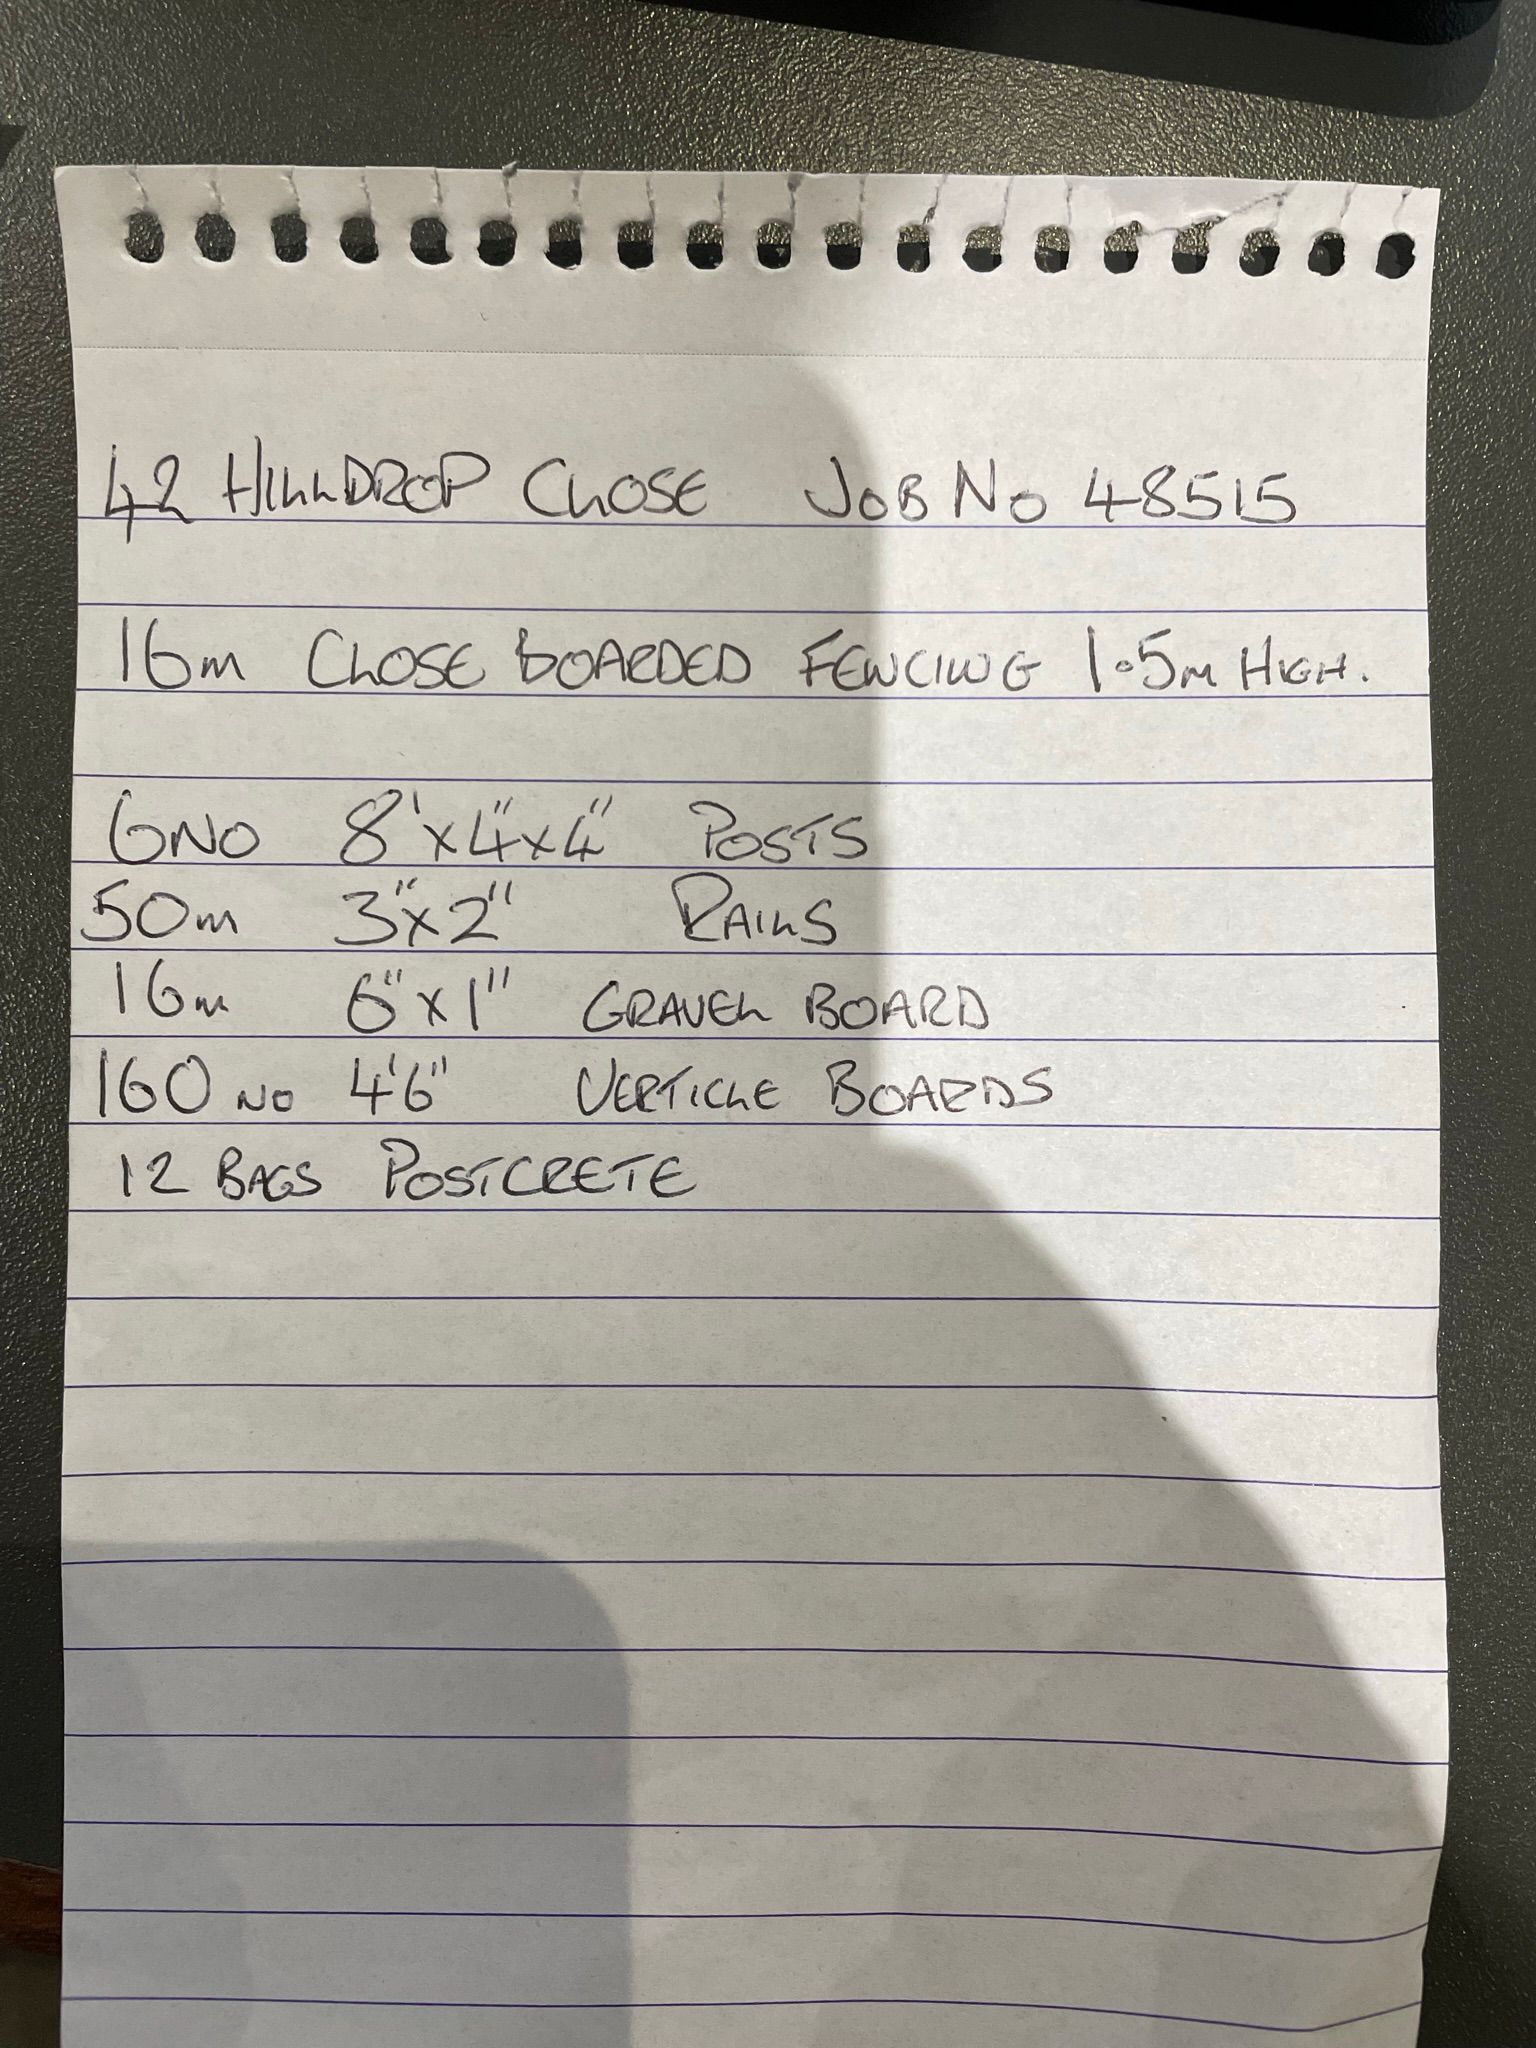 42 HILLDROP CLOSE JOB NO 48515
16m CLOSE BOARDED FENCING 1.5m HIGH.
6NO 8'x4"x4" POSTS
50m 3"x2" RAILS
16m 6"x1" GRAVEL BOARD
160 NO 4'6" VERTICLE BOARDS
12 BAGS POSTCRETE